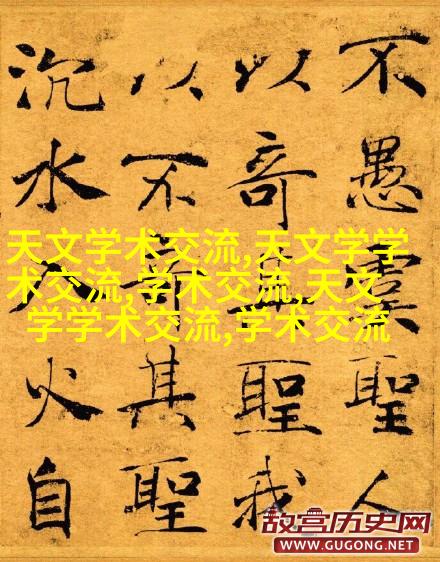 不愚虞聖人
以奇聖我
以不奇其聖
沉水入火自
天文学术交流,天文学学
术交流,学术交流,天文
学学术交流,学术交流
故宫历史网
WWW.GUGONG.NET